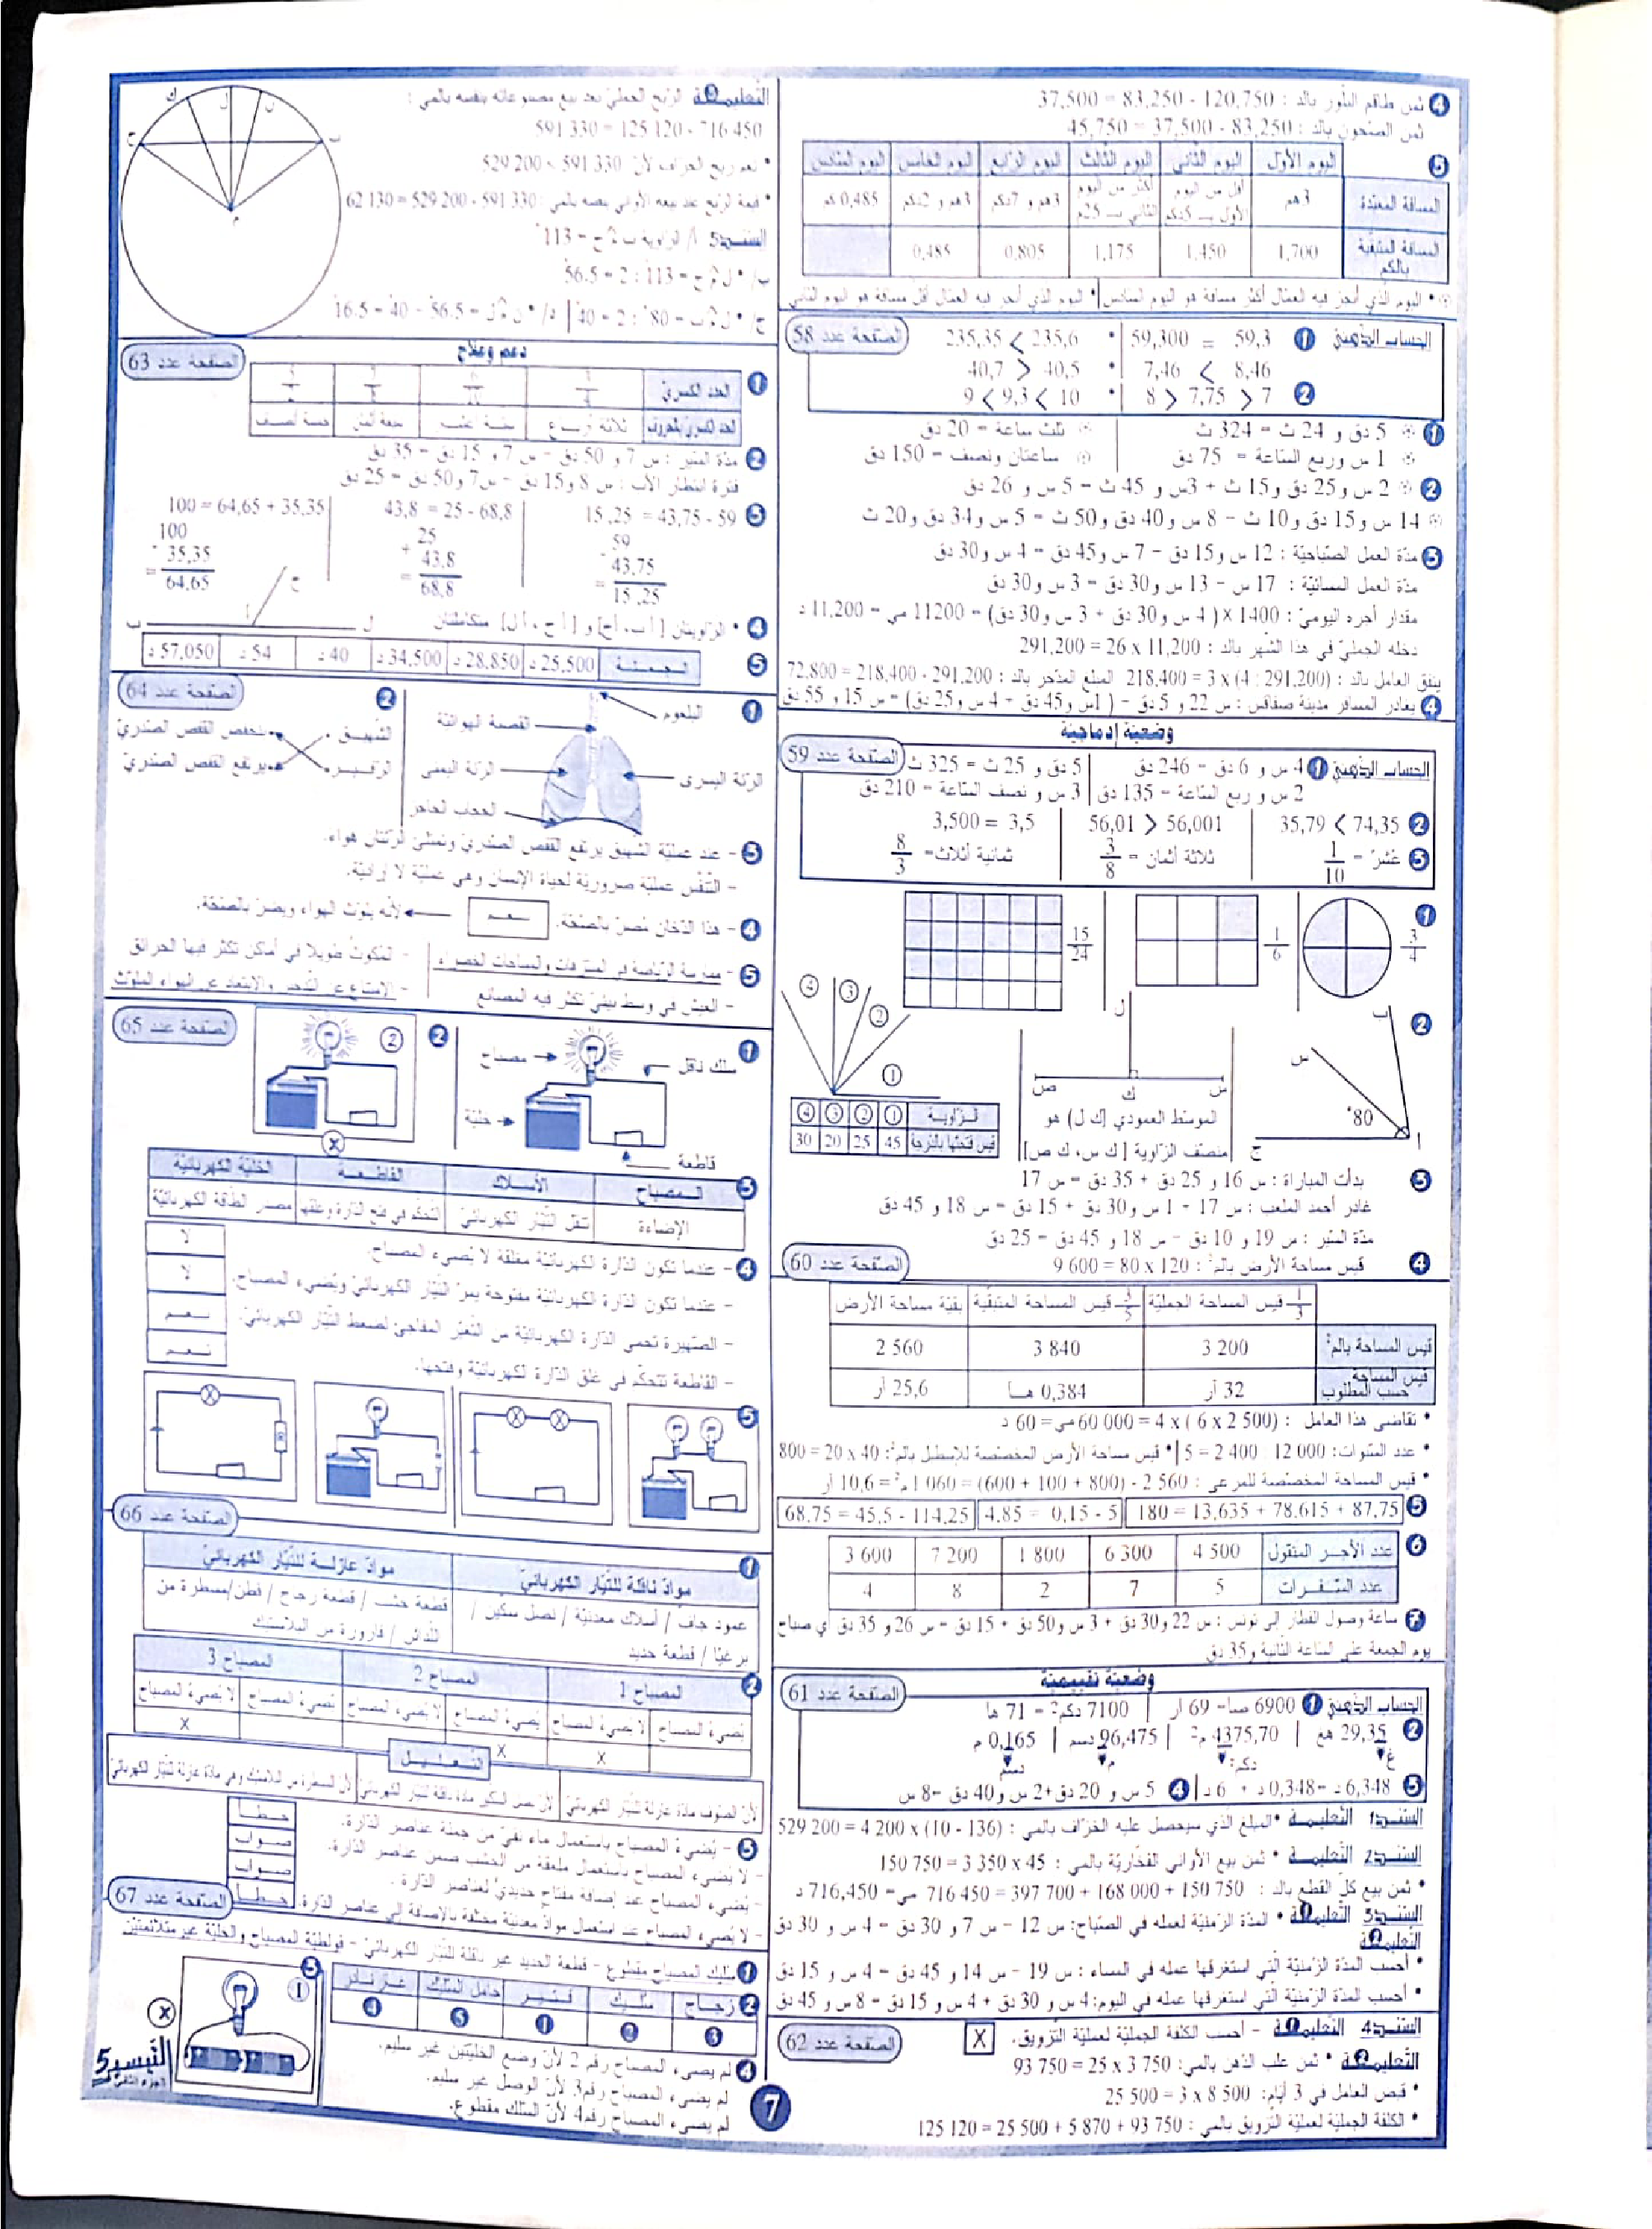 ④ ثمن طاقم البلّور بالد : 120,750 - 83,250 = 37,500
ثمن الصّحون بالد : 83,250 - 37,500 = 45,750
⑤
اليوم الأوّل | اليوم الثّاني | اليوم الثّالث | اليوم الرّابع | اليوم الخامس | اليوم السّادس
المسافة المعبّدة | 3هم | أقل من اليوم الأول بـ 5دكم | أكثر من اليوم الثاني بـ 25م | 3هم و 7دكم | 3هم و 2دكم | 0,485كم
المسافة المتبقّية بالكم | 1,700 | 1,450 | 1,175 | 0,805 | 0,485
* اليوم الذي أنجز فيه العمّال أكثر مسافة هو اليوم السّادس * اليوم الذي أنجز فيه العمّال أقل مسافة هو اليوم الثاني
الصّفحة عدد 58
الحساب الذّهني ① 59,3 = 59,300 • 235,6 > 235,35
8,46 > 7,46 • 40,5 < 40,7
② 7 < 7,75 < 8 • 10 > 9,3 > 9
① 5 دق و 24 ث = 324 ث | ثلث ساعة = 20 دق
1 س وربع السّاعة = 75 دق | ساعتان ونصف = 150 دق
② 2 س و25 دق و15 ث + 3س و 45 ث = 5 س و 26 دق
14 س و15 دق و10 ث - 8 س و40 دق و50 ث = 5 س و34 دق و20 ث
③ مدّة العمل الصّباحيّة : 12 س و15 دق - 7 س و45 دق = 4 س و30 دق
مدّة العمل المسائيّة : 17 س - 13 س و30 دق = 3 س و30 دق
مقدار أجره اليوميّ : 1400 x ( 4 س و30 دق + 3 س و30 دق) = 11200 مي = 11,200 د
دخله الجمليّ في هذا الشّهر بالد : 11,200 x 26 = 291,200
ينفق العامل بالد : (291,200 : 4) x 3 = 218,400 المبلغ المدّخر بالد : 291,200 - 218,400 = 72,800
④ يغادر المسافر مدينة صفاقس : س 22 و 5 دق - ( 1س و45 دق + 4 س و25 دق) = س 15 و 55 دق
وضعيّة إدماجيّة
الصّفحة عدد 59
الحساب الذّهني ① 4 س و 6 دق = 246 دق | 5 دق و 25 ث = 325 ث
2 س و ربع السّاعة = 135 دق | 3 س و نصف السّاعة = 210 دق
② 74,35 > 35,79 | 56,001 < 56,01 | 3,5 = 3,500
③ عُشر = 1/10 | ثلاثة أثمان = 3/8 | ثمانية أثلاث = 8/3
① 3/4 1/6 15/24
② ب س 80° أ ج
ل س ك ص
الموسّط العمودي [ك ل) هو
منصّف الزّاوية [ك س، ك ص]
① ② ③ ④
الـزّاويـة | ① | ② | ③ | ④
قيس فتحتها بالدّرجة | 45 | 25 | 20 | 30
③ بدأت المباراة : س 16 و 25 دق + 35 دق = س 17
غادر أحمد الملعب : س 17 + 1 س و30 دق + 15 دق = س 18 و 45 دق
مدّة السّير : س 19 و 10 دق - س 18 و 45 دق = 25 دق
④ قيس مساحة الأرض بالم² : 120 x 80 = 9 600
الصّفحة عدد 60
1/3 قيس المساحة الجمليّة | قيس المساحة المتبقّية | بقيّة مساحة الأرض
قيس المساحة بالم² | 3 200 | 3 840 | 2 560
قيس المساحة حسب المطلوب | 32 آر | 0,384 هـا | 25,6 آر
* تقاضى هذا العامل : (2 500 x 6 ) x 4 = 60 000مي= 60 د
* عدد السّنوات: 12 000 : 2 400 = 5 | * قيس مساحة الأرض المخصّصة للإسطبل بالم²: 40 x 20 = 800
* قيس المساحة المخصّصة للمرعى : 2 560 - (800 + 100 + 600) = 1 060م² = 10,6 آر
⑤ 87,75 + 78,615 + 13,635 = 180 | 5 - 0,15 = 4,85 | 114,25 - 45,5 = 68,75
⑥ عدد الآجـر المنقول | 4 500 | 6 300 | 1 800 | 7 200 | 3 600
عدد السّـفـرات | 5 | 7 | 2 | 8 | 4
⑦ ساعة وصول القطار إلى تونس : س 22 و30 دق + 3 س و50 دق + 15 دق = س 26 و 35 دق أي صباح
يوم الجمعة على السّاعة الثانية و35 دق
وضعيّة تقييميّة
الصّفحة عدد 61
الحساب الذّهني ① 6900 صا= 69 آر | 7100 دكم² = 71 ها
② 29,35 هغ | 4375,70 م² | 96,475 دسم | 0,165 م
غ دكم² م دسم
③ 6,348 د = 0,348 د + 6 د | ④ 5 س و 20 دق+2 س و40 دق =8 س
السّند1 التّعليمـة * المبلغ الذي سيحصل عليه الخزّاف بالمي : (136 - 10) x 4 200 = 529 200
السّند2 التّعليمـة * ثمن بيع الأواني الفخّاريّة بالمي : 45 x 3 350 = 150 750
* ثمن بيع كل القطع بالد : 150 750 + 168 000 + 397 700 = 716 450 مي= 716,450 د
السّند3 التّعليمة1 * المدّة الزّمنيّة لعمله في الصّباح: س 12 - س 7 و 30 دق = 4 س و 30 دق
التّعليمة2
* أحسب المدّة الزّمنيّة الّتي استغرقها عمله في المساء : س 19 - س 14 و 45 دق = 4 س و 15 دق
* أحسب المدّة الزّمنيّة الّتي استغرقها عمله في اليوم: 4 س و 30 دق + 4 س و 15 دق = 8 س و 45 دق
الصّفحة عدد 62
السّند4 التّعليمة1 - أحسب الكلفة الجمليّة لعمليّة التّزويق. X
التّعليمة2 * ثمن علب الدّهن بالمي: 3 750 x 25 = 93 750
* قبض العامل في 3 أيّام: 8 500 x 3 = 25 500
* الكلفة الجمليّة لعمليّة التّزويق بالمي : 93 750 + 5 870 + 25 500 = 125 120
التّعليمة3 الرّبح الجمليّ بعد بيع مصنوعاته بنفسه بالمي :
716 450 - 125 120 = 591 330
* نعم ربح الخزاف لأنّ 591 330 > 529 200
* قيمة الرّبح عند بيعه الأواني بنفسه بالمي : 591 330 - 529 200 = 62 130
السّند5 أ/ الزاوية ب م ح = 113°
ب/ * ل م ح = 113 : 2 = 56.5
ج/ * ل م ب = 80 : 2 = 40 | د/ * ن م ل = 56.5 - 40 = 16.5
ك ل ن ح ب م
دعم وعلاج
الصّفحة عدد 63
① العدد الكسريّ
العدد الكسري بالحروف | ثلاثة أربـــاع | ستـة عشـر | سبعة أثمان | خمسة أنصـف
② مدّة السّير : س 7 و 50 دق - س 7 و 15 دق = 35 دق
فترة انتظار الأب : س 8 و15 دق - س7 و 50 دق = 25 دق
③ 59 - 43,75 = 15,25 | 68,8 - 25 = 43,8 | 35,35 + 64,65 = 100
59 25 100
- 43,75 + 43,8 - 35,35
= 15,25 = 68,8 = 64,65
ل أ ح ب
④ * الزّاويتان [أ ب، أ ح] و [أ ح ، أ ل] متكاملتان
⑤ الـجـمـلـة | 25,500 د | 28,850 د | 34,500 د | 40 د | 54 د | 57,050 د
الصّفحة عدد 64
① البلعوم القصبة الهوائيّة
الرّئة اليسرى الرّئة اليمنى
الحجاب الحاجز
② الشّهيـق • • ينخفض القفص الصّدريّ
الزّفـيـر • • يرتفع القفص الصّدريّ
③ - عند عمليّة الشّهيق يرتفع القفص الصّدريّ وتمتلئ الرّئتان هواء.
- التّنفّس عمليّة ضروريّة لحياة الإنسان وهي عمليّة لا إراديّة.
④ - هذا الدّخان مُضرّ بالصّحّة. نـعـم لأنّه يلوّث الهواء ويضرّ بالصّحّة.
⑤ - ممارسة الرّياضة في المنتزهات والمساحات الخضراء - المكوث طويلا في أماكن تكثر فيها الحرائق
- العيش في وسط بيئيّ تكثر فيه المصانع - الامتناع عن التّدخين والابتعاد عن الهواء الملوّث
الصّفحة عدد 65
① سلك ناقل مصباح
خليّة
قاطعة
② ② X
③ الـمصبـاح | الأسـلاك | القاطـعـة | الخليّة الكهربائيّة
الإضاءة | تنقل التّيّار الكهربائيّ | تتحكّم في فتح الدّارة وغلقها | مصدر الطّاقة الكهربائيّة
④ - عندما تكون الدّارة الكهربائيّة مغلقة لا يُضيء المصباح. لا
- عندما تكون الدّارة الكهربائيّة مفتوحة يمرّ التّيّار الكهربائيّ ويُضيء المصباح. لا
- الصّهيرة تحمي الدّارة الكهربائيّة من التّغيّر المفاجئ لضغط التّيّار الكهربائيّ. نـعـم
- القاطعة تتحكّم في غلق الدّارة الكهربائيّة وفتحها. نـعـم
⑤
الصّفحة عدد 66
① موادّ ناقلة للتّيّار الكهربائيّ | موادّ عازلـة للتّيّار الكهربائيّ
عمود جاف / أسلاك معدنيّة / نصل سكّين / برغيّ / قطعة حديد | قطعة خشب / قطعة زجاج / قطن / مسطرة من اللّدائن / قارورة من البلاستيك
② المصباح 1 | المصباح 2 | المصباح 3
يُضيء المصباح | لا يُضيء المصباح | يُضيء المصباح | لا يُضيء المصباح | يُضيء المصباح | لا يُضيء المصباح
X X X
التـعـلـيـل
لأنّ الصّوف مادّة عازلة للتّيّار الكهربائيّ | لأنّ نصل السّكين مادّة ناقلة للتّيّار الكهربائيّ | لأنّ المسطرة من البلاستيك وهي مادّة عازلة للتّيّار الكهربائيّ
③ - يُضيء المصباح باستعمال ماء نقيّ من جملة عناصر الدّارة. خـطـأ
- لا يُضيء المصباح باستعمال ملعقة من الخشب ضمن عناصر الدّارة. صـواب
- يُضيء المصباح عند إضافة مفتاح حديديّ لعناصر الدّارة. صـواب
- لا يُضيء المصباح عند استعمال موادّ معدنيّة مختلفة بالإضافة إلى عناصر الدّارة. خـطـأ
الصّفحة عدد 67
① سلك المصباح مقطوع - قطعة الحديد غير ناقلة للتّيّار الكهربائيّ - فولطيّة المصباح والخليّة غير متلائمتين
② زجـاج | سـلـك | فـتـيـر | حامل السّلك | غـاز نـادر
③ | ② | ① | ⑤ | ④
③ ① X
④ لم يُضيء المصباح رقم 2 لأنّ وضع الخليّتين غير سليم.
لم يضيء المصباح رقم3 لأنّ الوصل غير سليم.
لم يضيء المصباح رقم4 لأنّ السّلك مقطوع.
7
التّيسير5
الجزء الثاني